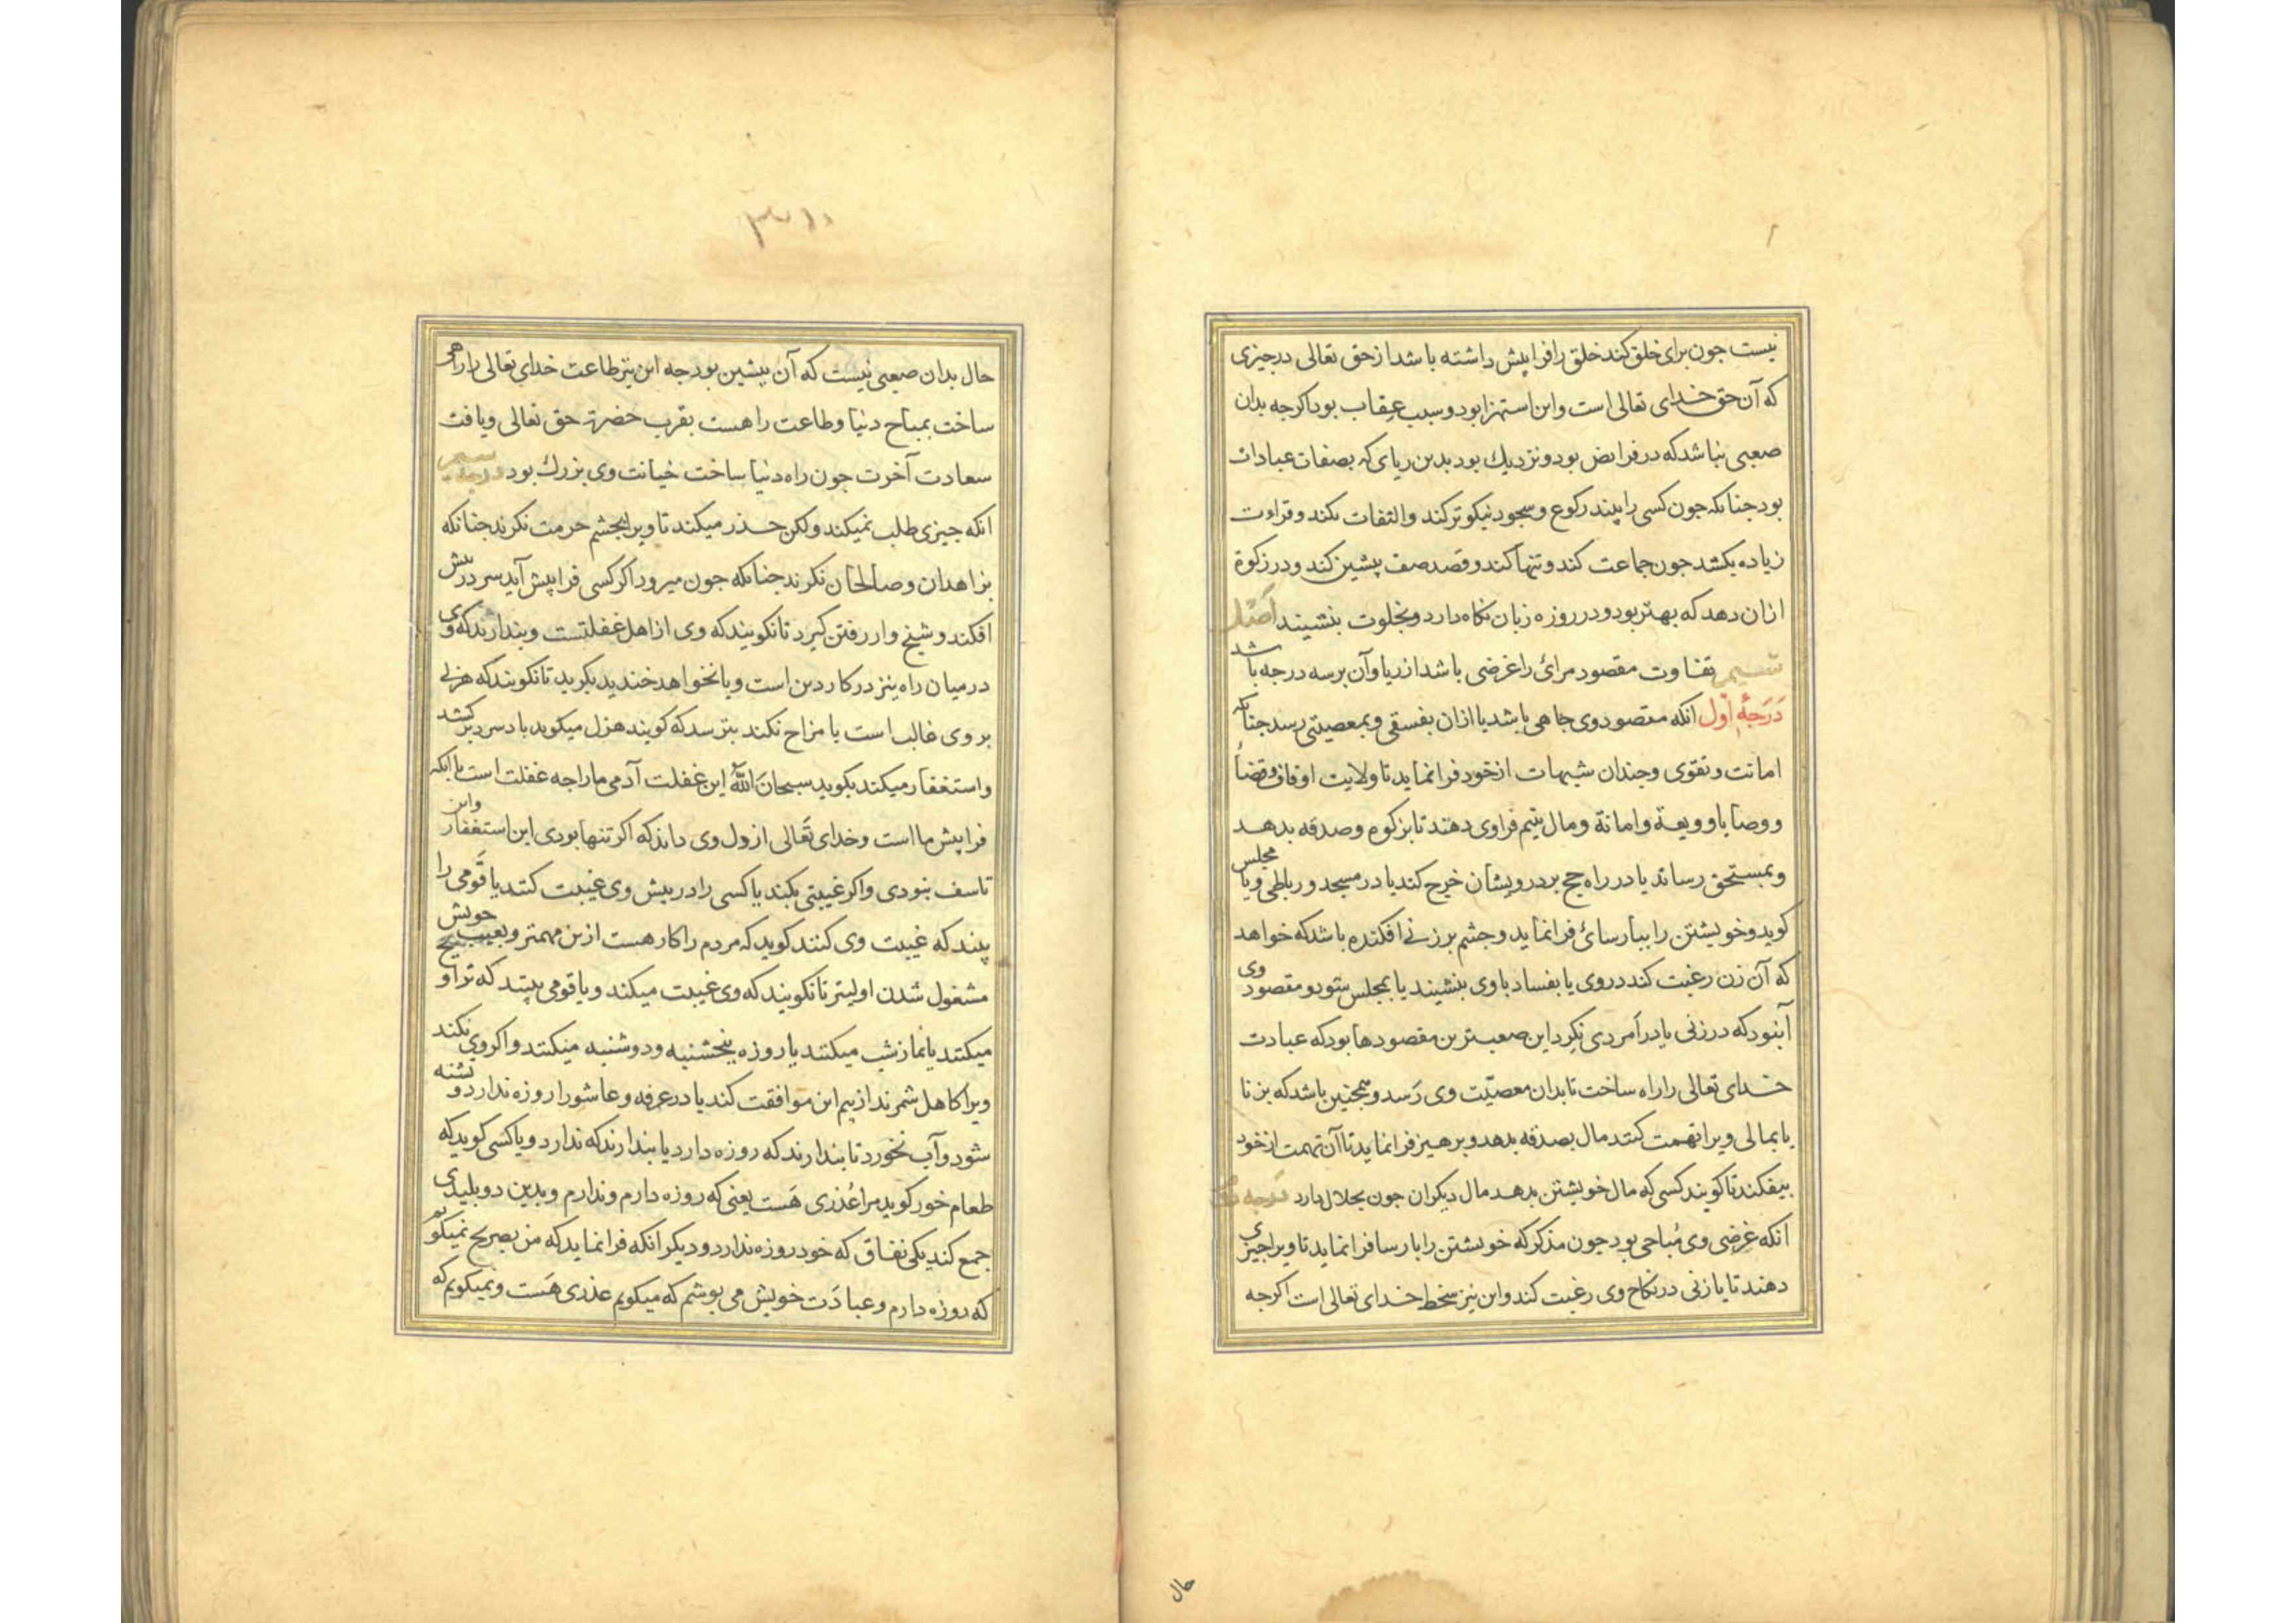 نیست جون برای خلق کند خلق را فرا پیش داشته باشد از حق تعالی در جیزی
که آن حق خدای تعالی است واین استهزا بود و سبب عقاب بود اکرجه بدان
صعبی نباشد که در فرایض بود و نزدیك بود بدین ریای که بصفات عبادات
بود جنانکه جون کسی را بیند رکوع و سجود نیکوتر کند و التفات نکند و قراءت
زیاده بکشد جون جماعت کند و تنها کند و قصد صف پیشین کند و در زکوة
ازان دهد که بهتر بود و در روزه زبان نکاه دارد و بخلوت بنشیند اصل
سیم تفاوت مقصود مرائ را غرضی باشد از ریا و آن بر سه درجه باشد
درجۀ اول انکه مقصود وی جاهی باشد یا ازان بفسقی و بمعصیتی رسد جنانکه
امانت و تقوی و جندان شبهات از خود فرا نماید تا ولایت اوقاف و قضا
و وصایا و ودیعة و امانة و مال یتیم فرا وی دهند تا بزکوه و صدقه بدهد
و بمستحق رساند یا در راه حج بر درویشان خرج کند یا در مسجد و رباطی و یا مجلس
کوید و خویشتن را ببارسائ فرا نماید و جشم بر زنی افکنده باشد که خواهد
که آن زن رغبت کند در وی یا بفساد با وی بنشیند یا بمجلس شود و مقصود وی
آنبود که در زنی یا در امردی نکرد این صعبترین مقصودها بود که عبادت
خدای تعالی را راه ساخت تا بدان معصیت وی رسد و همجنین باشد که بزنا
یا بمالی ویرا تهمت کنند مال بصدقه بدهد و برهیز فرا نماید تا آن تهمت از خود
بیفکند تا کویند کسی که مال خویشتن بدهد مال دیکران جون بحلال دارد درجه دوم
انکه غرضی وی مباحی بود جون مذکر که خویشتن را بارسا فرا نماید تا ویرا جیزی
دهند تا یا زنی در نکاح وی رغبت کند و این نیز سخط خدای تعالی است اکرجه
حال
حال بدان صعبی نیست که آن پیشین بود جه این نیز طاعت خدای تعالی را راهی
ساخت بمباح دنیا و طاعت راهست بقرب حضرت حق تعالی و یافت
سعادت آخرت جون راه دنیا ساخت خیانت وی بزرك بود درجه سیم
انکه جیزی طلب نمیکند ولکن حذر میکند تا ویرا بجشم حرمت نکرند جنانکه
بزاهدان و صالحان نکرند جنانکه جون میرود اکر کسی فرا پیش آید سر در پیش
افکند و شیخ وار رفتن کیرد تا نکویند که وی از اهل غفلتست و بندارند که وی
در میان راه نیز در کار دین است و یا نخواهد خندید بکرید تا نکویند که هزلی
بر وی غالب است یا مزاح نکند بترسد که کویند هزل میکوید باد سرد برکشد
و استغفار میکند بکوید سبحان الله این غفلت آدمی ما را جه غفلت است با آنکه
فرا پیش ما است و خدای تعالی از ول وی داند که اکر تنها بودی این استغفار واین
تاسف بنودی و اکر غیبتی بکند یا کسی را در پیش وی غیبت کنند یا قومی را
بیند که غیبت وی کنند کوید که مردم را کار هست ازین مهمتر و بعیب خویش
مشغول شدن اولیتر تا نکویند که وی غیبت میکند و یا قومی بیند که تراویح
میکنند یا نماز شب میکنند یا روزه پنجشنبه و دوشنبه میکنند و اکر وی نکند
ویرا کاهل شمرند از بیم این موافقت کند یا در عرفه و عاشورا روزه ندارد و تشنه
شود و آب نخورد تا بندارند که روزه دارد یا بندارند که ندارد و یا کسی کوید که
طعام خور کوید مرا عذری هست یعنی که روزه دارم و ندارم و بدین دو بلیدی
جمع کند یکی نفاق که خود روزه ندارد و دیکر انکه فرا نماید که من بصریح نمیکویم
که روزه دارم و عبادت خویش می بوشم که میکویم عذری هست و نمیکویم که